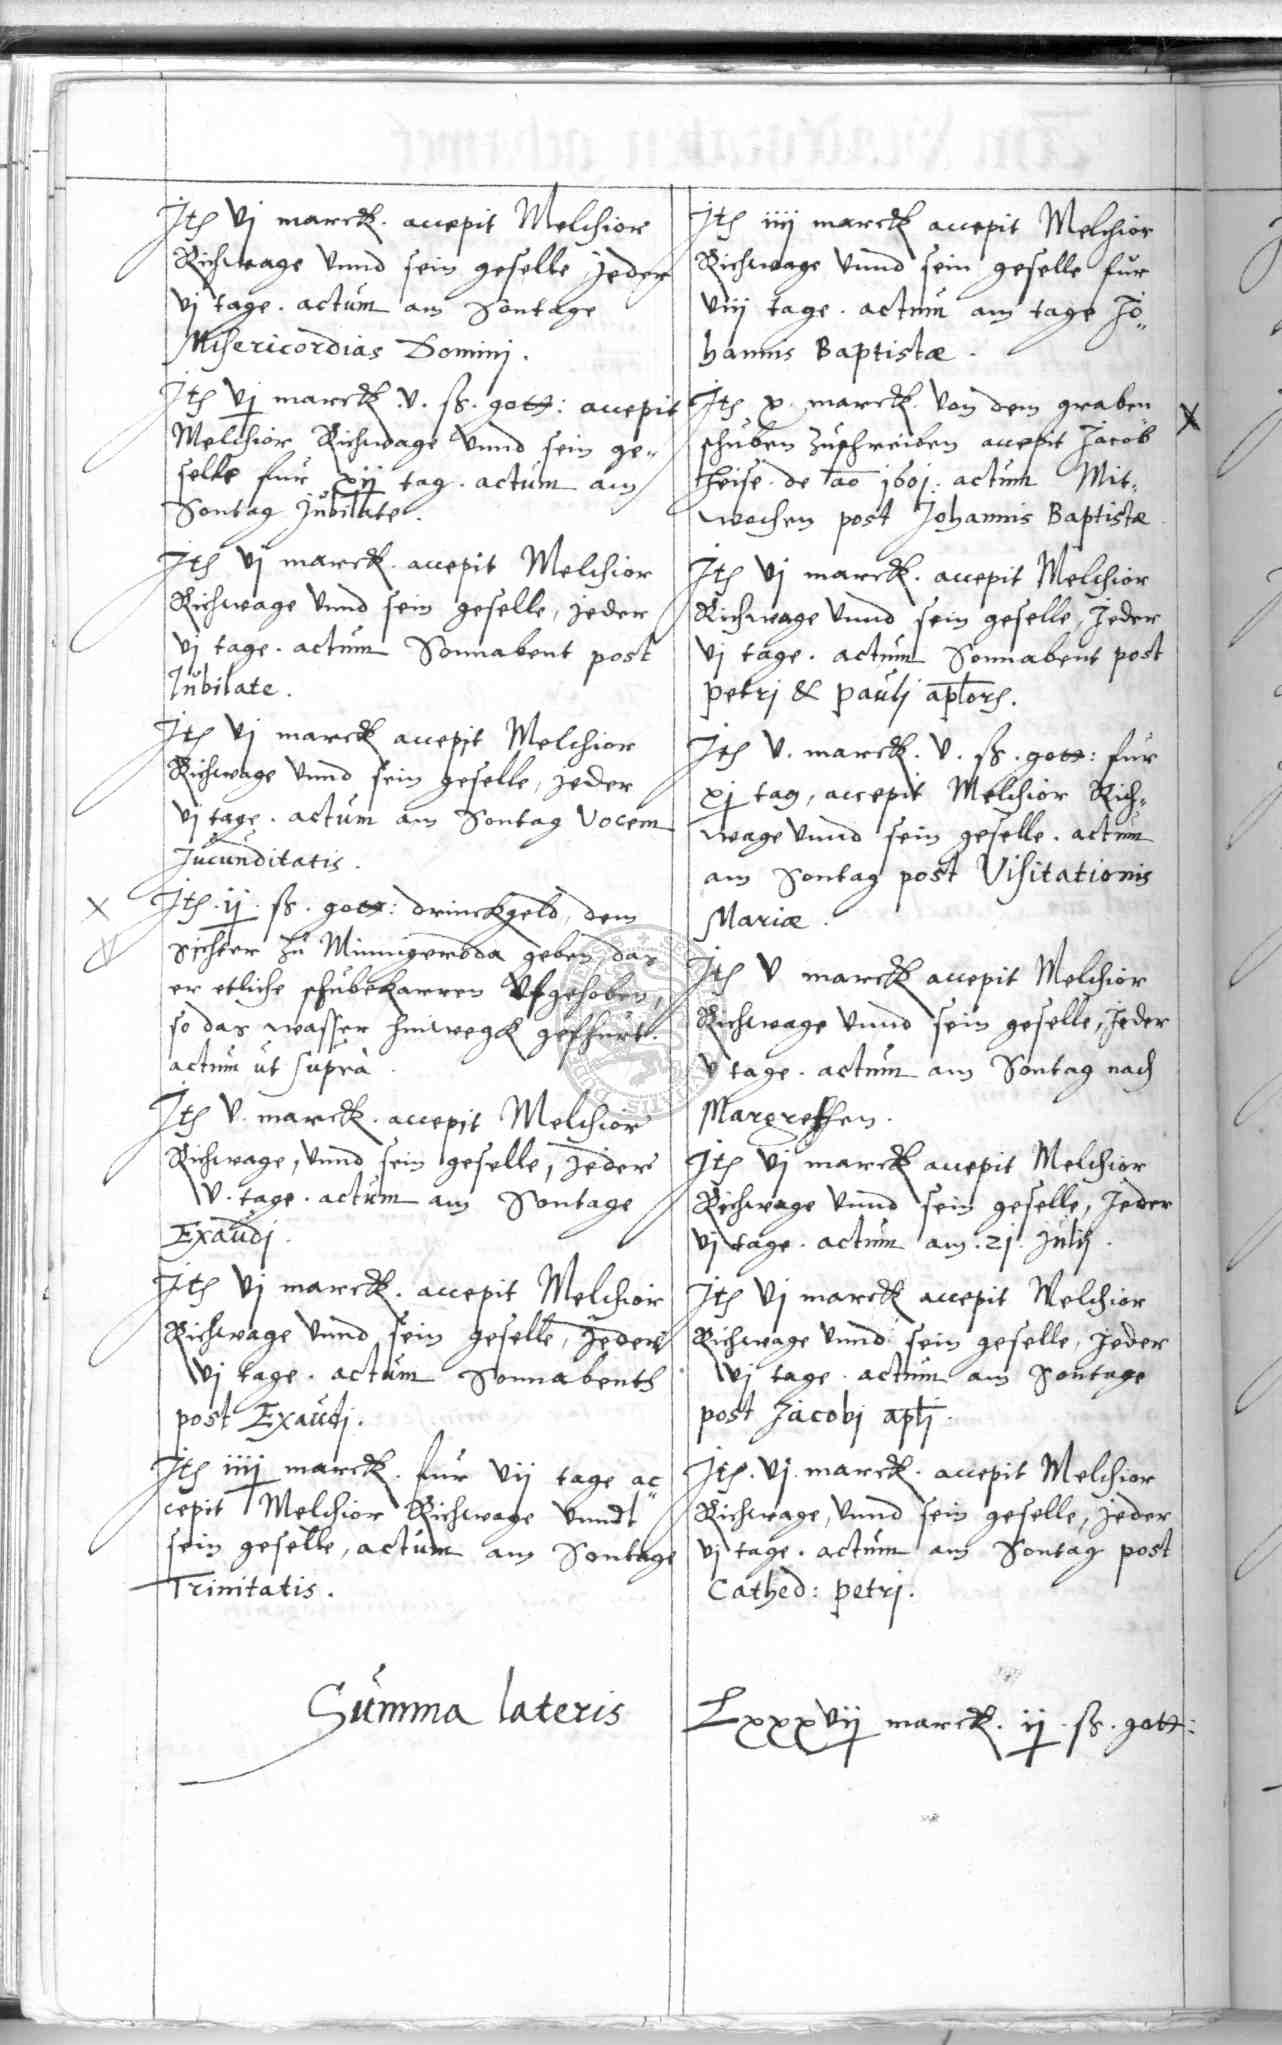 Jtē vj marck. accepit Melchior
Richwage vnnd sein geselle, jeder
vj tage. actum am Sontage
Misericordias Dominj.
Jtē vj marck. v. ß. gott: accepit
Melchior Richwage vnnd sein ge„
selle fur xij tag. actum am
Sontag Jubilate.
Jtē vj marck. accepit Melchior
Richwage vnnd sein geselle, jeder
vj tage. actum Sonnabent post
Jubilate.
Jtē vj marck accepit Melchior
Richwage vnnd sein geselle, jeder
vj tage. actum am Sontag Vocem
Jucunditatis.
Jtē. ij. ß. gott: drinckgeld, dem
richter zu Minnigeroda geben, das
er etliche schubekarren vfgehoben,
so das wasser hinwegk gefhurt.
actum ut suprà.
Jtē v. marck. accepit Melchior
Richwage, vnnd sein geselle, jeder
v. tage. actum am Sontage
Exaudj.
Jtē vj marck. accepit Melchior
Richwage vnnd sein geselle, jeder
vj tage. actum Sonnabents
post Exaudj.
Jtē iiij marck. fur vij tage ac„
cepit Melchior Richwage vnndt
sein geselle, actum am Sontage
Trinitatis.
Summa lateris
Jtē iiij marck accepit Melchior
Richwage vnnd sein geselle fur
viij tage. actum am tage Jo„
hannis Baptistæ.
Jtē x. marck. von dem graben
schuben zuschreiben accepit Jacob
Heise. de ao 1601. actum Mit„
wochen post Johannis Baptistæ.
Jtē vj marck. accepit Melchior
Richwage vnnd sein geselle, jeder
vj tage. actum Sonnabent post
petrj & paulj aplōr.
Jtē v. marck. v. ß. gott: fur
xj tag, accepit Melchior Rich„
wage vnnd sein geselle. actum
am Sontag post Visitationis
Mariæ.
Jtē v marck accepit Melchior
Richwage vnnd sein geselle, jeder
v tage. actum am Sontag nach
Margrethen.
Jtē vj marck accepit Melchior
Richwage vnnd sein geselle, jeder
vj tage. actum am. 21. Julij.
Jtē vj marck accepit Melchior
Richwage vnnd sein geselle, jeder
vj tage. actum am Sontage
post Jacobj aplj.
Jtē. vj. marck. accepit Melchior
Richwage, vnnd sein geselle, jeder
vj tage. actum am Sontag post
Cathed: petrj.
Lxxxvij marck. ij. ß. gott: